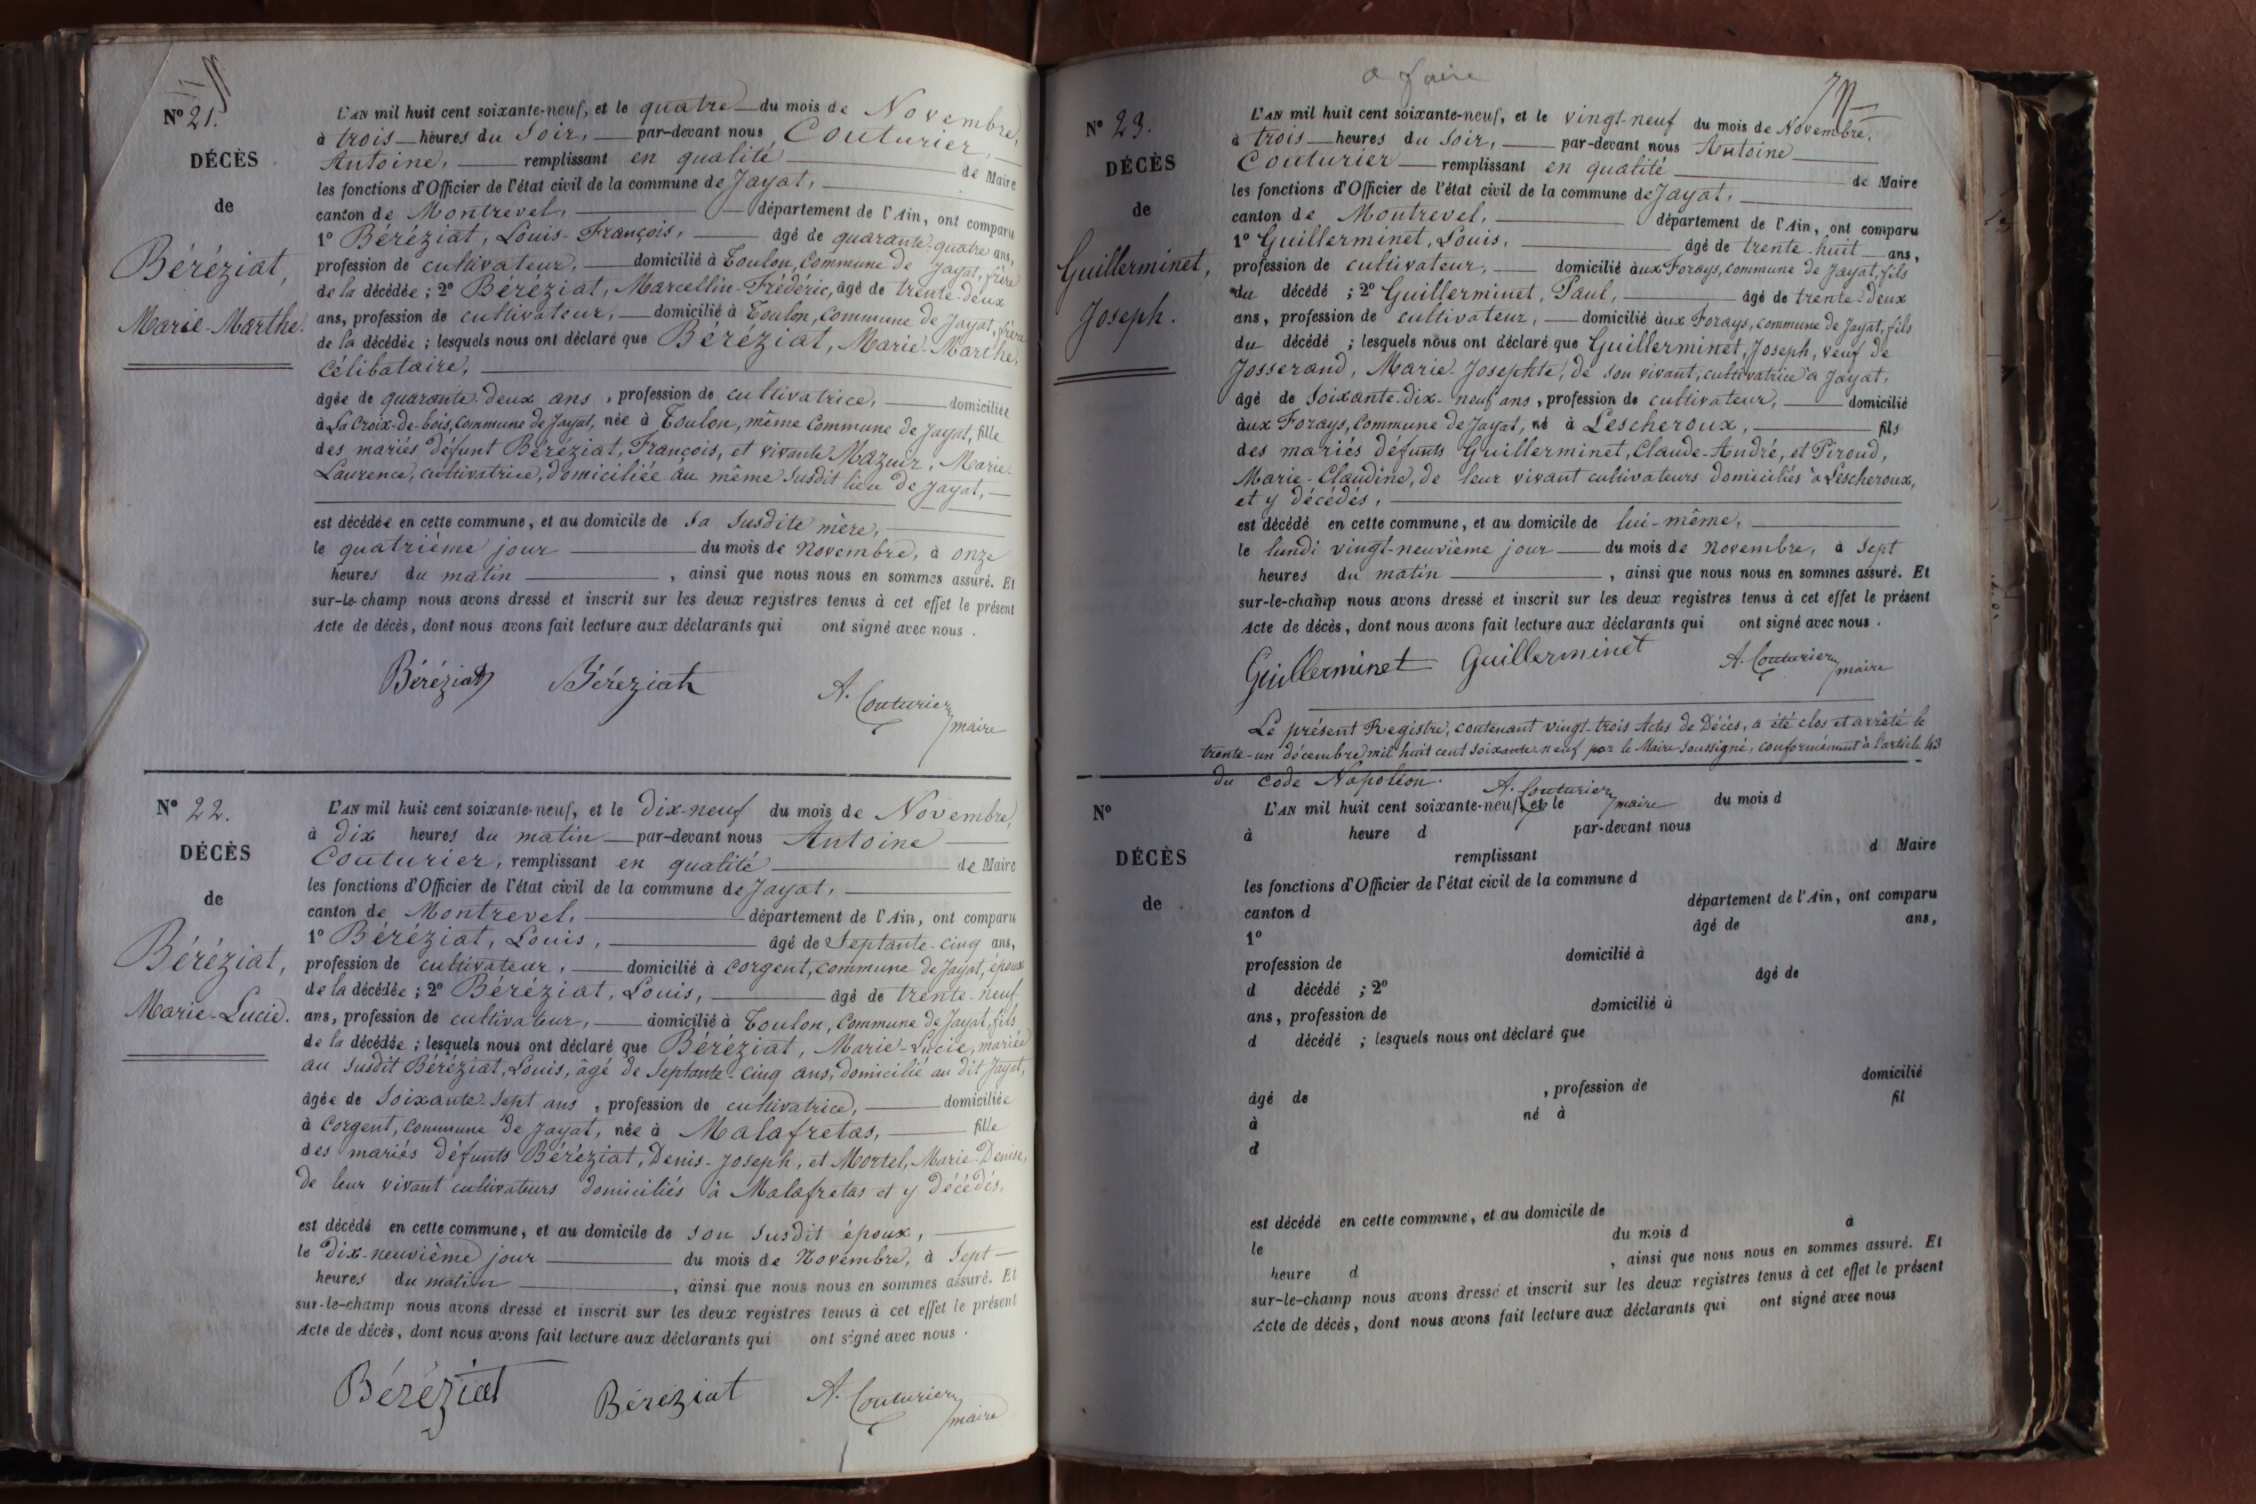 Nº 21.
DÉCÈS
de
Béréziat,
Marie-Marthe.
L'AN mil huit cent soixante-neuf, et le quatre du mois de Novembre,
à trois heures du Soir, par-devant nous Couturier,
Antoine, remplissant en qualité de Maire
les fonctions d'Officier de l'état civil de la commune de Jayat,
canton de Montrevel, département de l'Ain, ont comparu
1º Béréziat, Louis-François, âgé de quarante-quatre ans,
profession de cultivateur, domicilié à Toulon, Commune de Jayat, frère
de la décédée ; 2º Béréziat, Marcellin-Frédéric, âgé de trente-deux
ans, profession de cultivateur, domicilié à Toulon, Commune de Jayat, frère
de la décédée ; lesquels nous ont déclaré que Béréziat, Marie-Marthe,
Célibataire,
âgée de quarante-deux ans, profession de cultivatrice, domiciliée
à La Croix-de-bois, Commune de Jayat, née à Toulon, même Commune de Jayat, fille
des mariés défunt Béréziat, François, et vivante Mazuir, Marie
Laurence, cultivatrice, domiciliée au même susdit lieu de Jayat,
est décédée en cette commune, et au domicile de sa susdite mère,
le quatrième jour du mois de Novembre, à onze
heures du matin, ainsi que nous nous en sommes assuré. Et
sur-le-champ nous avons dressé et inscrit sur les deux registres tenus à cet effet le présent
Acte de décès, dont nous avons fait lecture aux déclarants qui ont signé avec nous.
Béréziat Béréziat A. Couturier
maire
Nº 22.
DÉCÈS
de
Béréziat,
Marie-Lucie.
L'AN mil huit cent soixante-neuf, et le Dix-neuf du mois de Novembre,
à Dix heures du matin par-devant nous Antoine
Couturier, remplissant en qualité de Maire
les fonctions d'Officier de l'état civil de la commune de Jayat,
canton de Montrevel, département de l'Ain, ont comparu
1º Béréziat, Louis, âgé de Septante-cinq ans,
profession de cultivateur, domicilié à Corgent, commune de Jayat, époux
de la décédée ; 2º Béréziat, Louis, âgé de trente-neuf
ans, profession de cultivateur, domicilié à Toulon, Commune de Jayat, fils
de la décédée ; lesquels nous ont déclaré que Béréziat, Marie-Lucie, mariée
au susdit Béréziat, Louis, âgé de Septante-cinq ans, domicilié au dit Jayat,
âgée de soixante-sept ans, profession de cultivatrice, domiciliée
à Corgent, commune de Jayat, née à Malafretas, fille
des mariés défunts Béréziat, Denis-Joseph, et Mortel, Marie-Denise,
de leur vivant cultivateurs domiciliés à Malafretas et y décédés,
est décédé en cette commune, et au domicile de son susdit époux,
le Dix-neuvième jour du mois de Novembre, à sept
heures du matin, ainsi que nous nous en sommes assuré. Et
sur-le-champ nous avons dressé et inscrit sur les deux registres tenus à cet effet le présent
Acte de décès, dont nous avons fait lecture aux déclarants qui ont signé avec nous.
Béréziat Béréziat A. Couturier
maire
a faire
Nº 23.
DÉCÈS
de
Guillerminet,
Joseph.
L'AN mil huit cent soixante-neuf, et le vingt-neuf du mois de Novembre,
à trois heures du Soir, par-devant nous Antoine
Couturier remplissant en qualité de Maire
les fonctions d'Officier de l'état civil de la commune de Jayat,
canton de Montrevel, département de l'Ain, ont comparu
1º Guillerminet, Louis, âgé de trente-huit ans,
profession de cultivateur, domicilié aux Forays, commune de Jayat, fils
du décédé ; 2º Guillerminet, Paul, âgé de trente-deux
ans, profession de cultivateur, domicilié aux Forays, commune de Jayat, fils
du décédé ; lesquels nous ont déclaré que Guillerminet, Joseph, veuf de
Josserand, Marie Josephte, de son vivant, cultivatrice à Jayat,
âgé de Soixante-dix-neuf ans, profession de cultivateur, domicilié
aux Forays, Commune de Jayat, né à Lescheroux, fils
des mariés défunts Guillerminet, Claude-André, et Piroud,
Marie-Claudine, de leur vivant cultivateurs domiciliés à Lescheroux,
et y décédés,
est décédé en cette commune, et au domicile de lui-même,
le lundi vingt-neuvième jour du mois de Novembre, à sept
heures du matin, ainsi que nous nous en sommes assuré. Et
sur-le-champ nous avons dressé et inscrit sur les deux registres tenus à cet effet le présent
Acte de décès, dont nous avons fait lecture aux déclarants qui ont signé avec nous.
Guillerminet Guillerminet A. Couturier
maire
Le présent Registre, contenant vingt-trois Actes de Décès, a été clos et arrêté le
trente-un décembre mil huit cent soixante-neuf par le Maire soussigné, conformément à l'article 43
du code Napoléon. A. Couturier
maire
Nº
DÉCÈS
de
L'AN mil huit cent soixante-neuf, et le du mois d
à heure d par-devant nous
remplissant d Maire
les fonctions d'Officier de l'état civil de la commune d
canton d département de l'Ain, ont comparu
1º âgé de ans,
profession de domicilié à
d décédé ; 2º âgé de
ans, profession de domicilié à
d décédé ; lesquels nous ont déclaré que
âgé de , profession de domicilié
à né à fil
d
est décédé en cette commune, et au domicile de
le du mois d à
heure d , ainsi que nous nous en sommes assuré. Et
sur-le-champ nous avons dressé et inscrit sur les deux registres tenus à cet effet le présent
Acte de décès, dont nous avons fait lecture aux déclarants qui ont signé avec nous